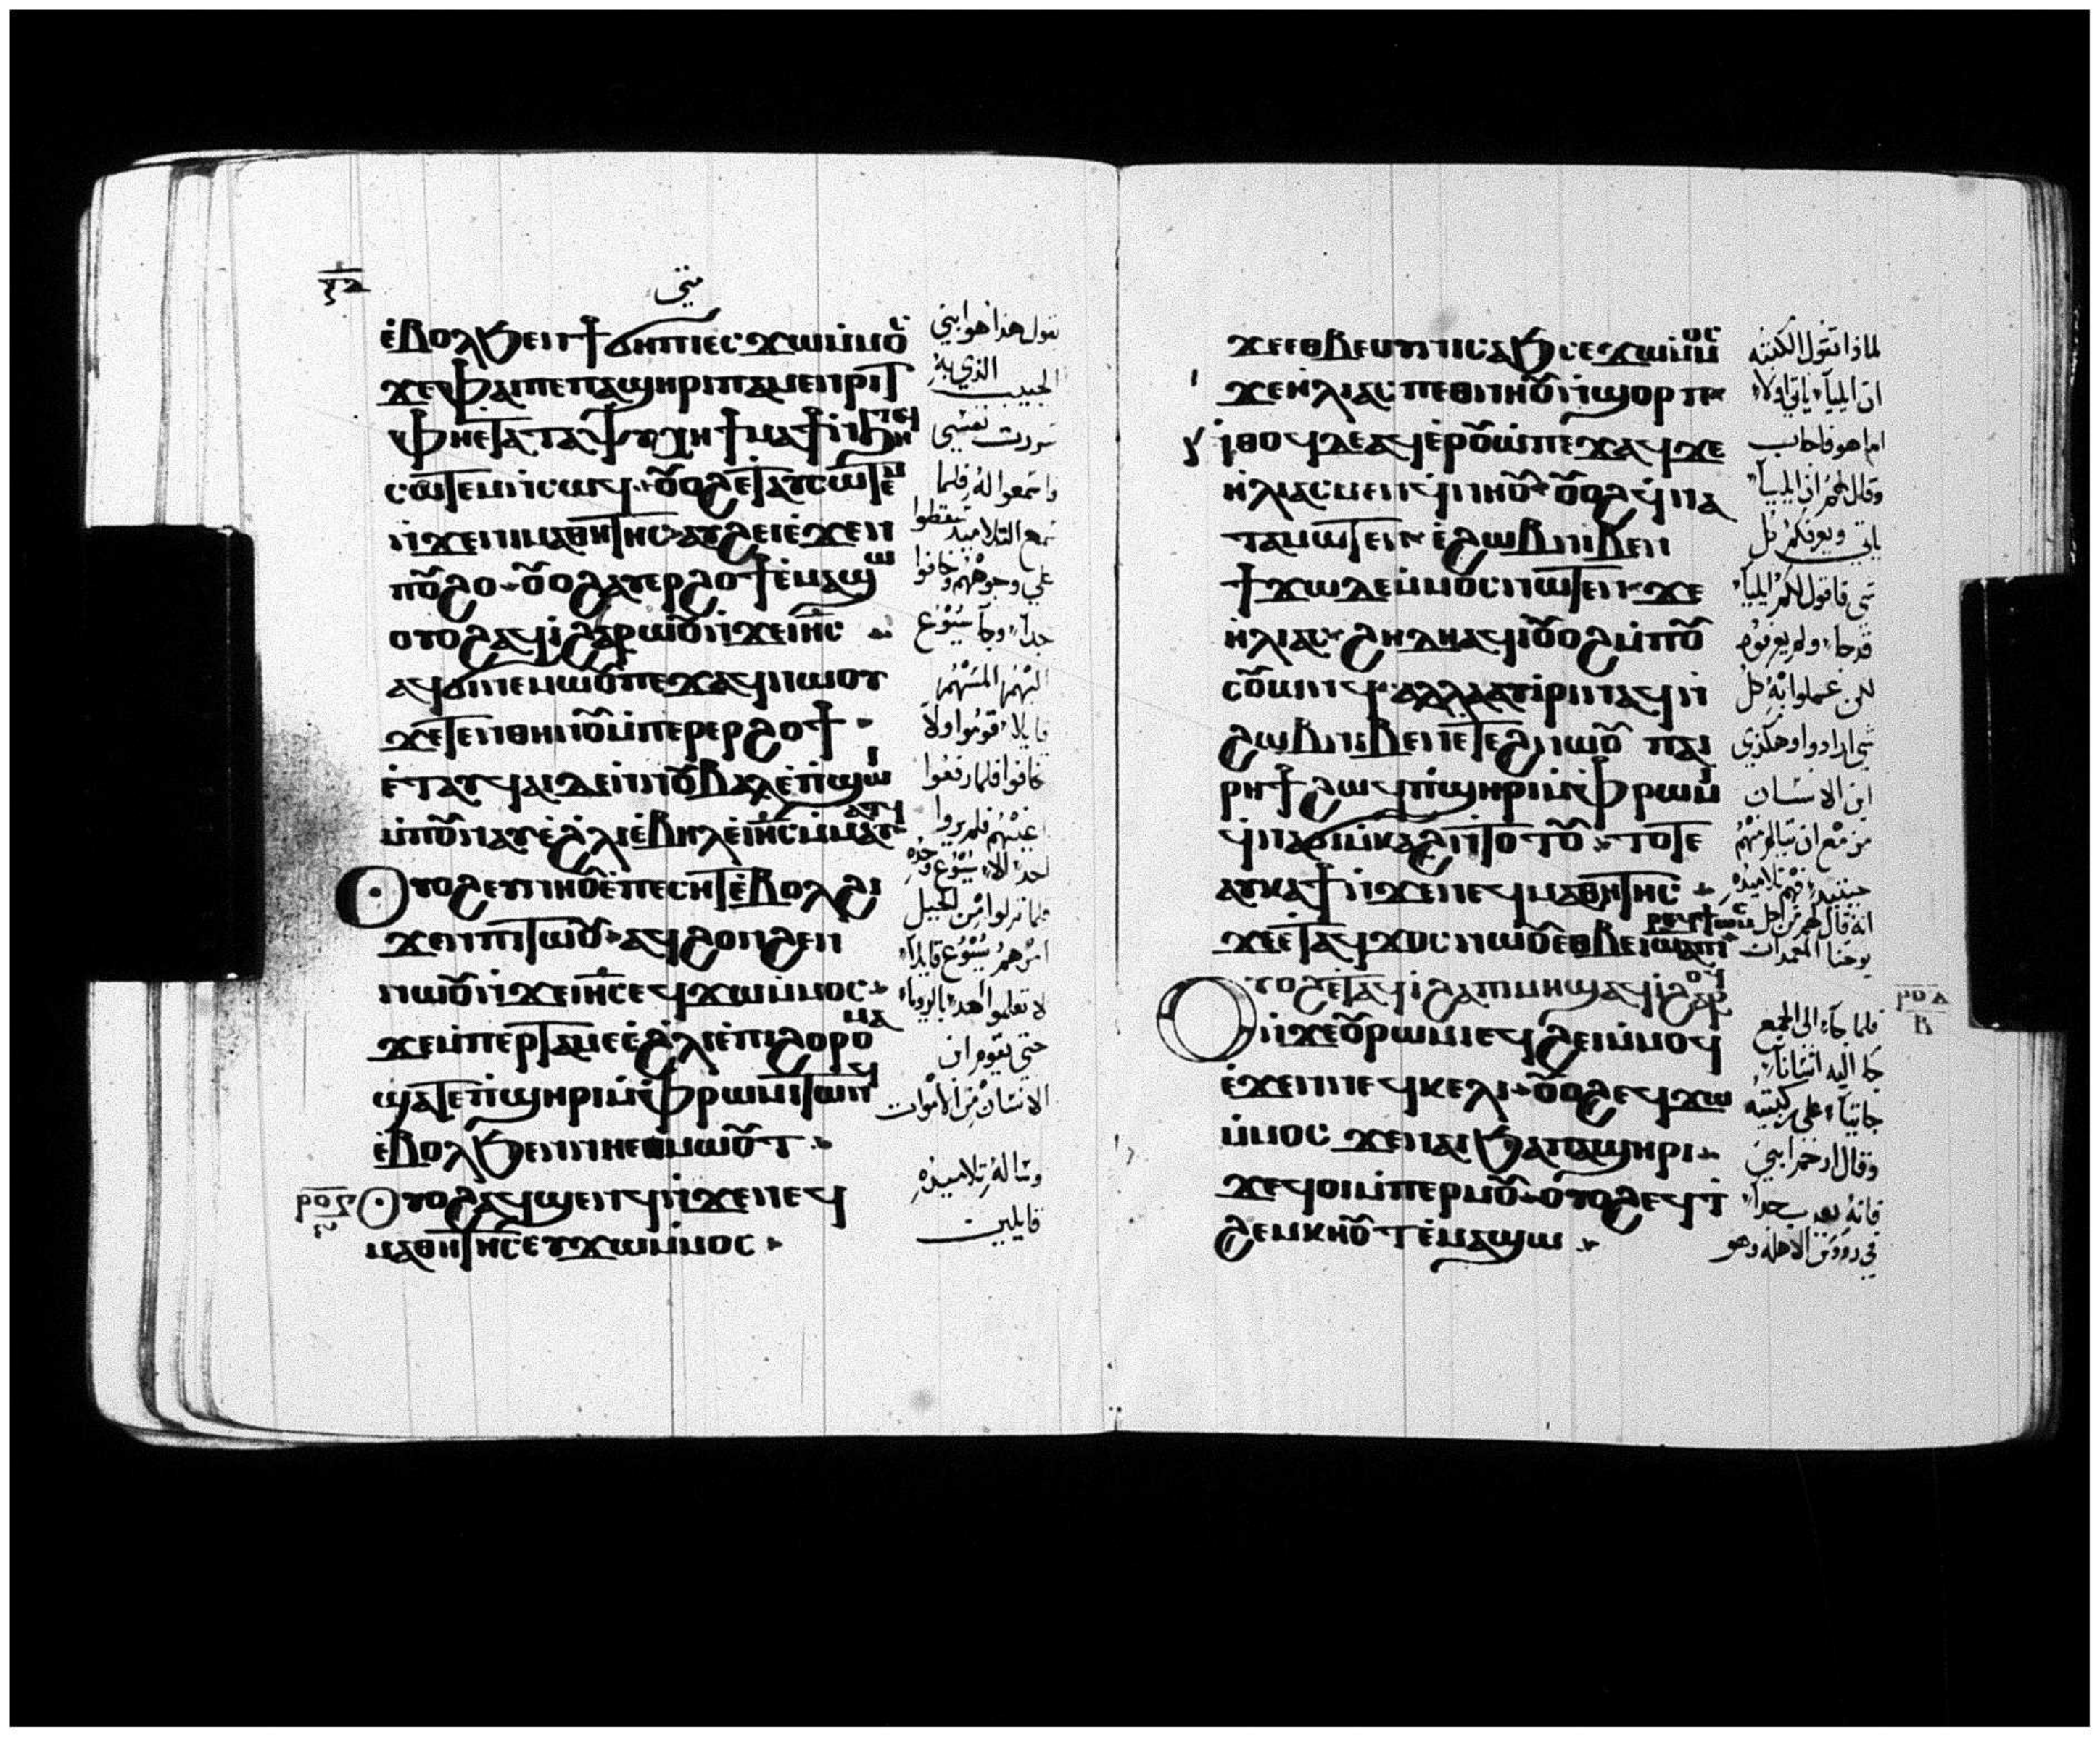 متى
ⲉ̀ⲃⲟⲗϧⲉⲛϯϭⲏⲡⲓⲉⲥϫⲱⲙ̀ⲙⲟⲥ
ϫⲉⲫⲁⲓⲡⲉⲡⲁϣⲏⲣⲓⲡⲁⲙⲉⲛⲣⲓⲧ
ⲫⲏⲉⲧⲁⲧⲁⲯⲩⲭⲏϯⲙⲁϯⲛ̀ϧⲏⲧϥ
ⲥⲱⲧⲉⲙⲛ̀ⲥⲱϥ ⲟⲩⲟϩⲉⲧⲁⲩⲥⲱⲧⲉⲙ
ⲛ̀ϫⲉⲛⲓⲙⲁⲑⲏⲧⲏⲥ ⲁⲩϩⲉⲓⲉ̀ϫⲉⲛ
ⲡⲟⲩϩⲟ ⲟⲩⲟϩⲁⲩⲉⲣϩⲟϯⲉ̀ⲙⲁϣⲱ
ⲟⲩⲟϩⲁϥⲓ̀ϩⲁⲣⲱⲟⲩⲛ̀ϫⲉⲓⲏⲥ
ⲁϥϭⲓⲛⲉⲙⲱⲟⲩⲡⲉϫⲁϥⲛⲱⲟⲩ
ϫⲉⲧⲉⲛⲑⲏⲛⲟⲩⲙ̀ⲡⲉⲣⲉⲣϩⲟϯ
ⲉ̀ⲧⲁⲩϥⲁⲓⲇⲉⲛ̀ⲛⲟⲩⲃⲁⲗⲉ̀ⲡ̀ϣⲱⲓ
ⲙ̀ⲡⲟⲩⲛⲁⲩⲉ̀ϩ̀ⲗⲓⲉ̀ⲃⲏⲗⲉ̀ⲓⲏⲥⲙ̀ⲙⲁⲩⲁⲧϥ
ⲟⲩⲟϩⲉⲩⲛⲏⲟⲩⲉ̀ⲡⲉⲥⲏⲧⲉ̀ⲃⲟⲗϩⲓ
ϫⲉⲛⲡⲓⲧⲱⲟⲩ ⲁϥϩⲟⲛϩⲉⲛ
ⲛⲱⲟⲩⲛ̀ϫⲉⲓⲏⲥⲉϥϫⲱⲙ̀ⲙⲟⲥ
ϫⲉⲙ̀ⲡⲉⲣⲧⲁⲙⲉⲉ̀ϩ̀ⲗⲓⲉ̀ⲡⲓϩⲟⲣⲟⲙⲁ
ϣⲁⲧⲉⲡ̀ϣⲏⲣⲓⲙ̀ⲫⲣⲱⲙⲓⲧⲱⲛϥ
ⲉ̀ⲃⲟⲗϧⲉⲛⲛⲏⲉⲑⲙⲱⲟⲩⲧ
ⲟⲩⲟϩⲁϥϣⲉⲛϥⲛ̀ϫⲉⲛⲉϥ
ⲙⲁⲑⲏⲧⲏⲥⲉⲩϫⲱⲙ̀ⲙⲟⲥ
تقول هذا هو ابني
الحبيب الذي به
سررت نفسي
واسمعوا له فلما
سمع التلاميذ سقطوا
علي وجوههم وخافوا
جداً وجآ يسوع
اليهم لمسهم
قايلا قوموا ولا
تخافوا فلما رفعوا
اعينهم فلم يروا
احدا الا يسوع وحده
فلما نزلوا من الجبل
امرهم يسوع قايلاً
لا تعلموا احدا بالرويا
حتي يقوم ابن
الانسان من الاموات
وساله تلاميذه
قايلين
ϫⲉⲉⲑⲃⲉⲟⲩⲛⲓⲥⲁϧⲥⲉϫⲱⲙ̀ⲙⲟⲥ
ϫⲉⲏ̀ⲗⲓⲁⲥⲡⲉⲑⲛⲏⲟⲩⲛ̀ϣⲟⲣⲡ
ⲛ̀ⲑⲟϥⲇⲉⲁϥⲉ̀ⲣⲟⲩⲱ̀ⲡⲉϫⲁϥϫⲉ
ⲏ̀ⲗⲓⲁⲥⲙⲉⲛϥ̀ⲛⲏⲟⲩ ⲟⲩⲟϩϥ̀ⲛⲁ
ⲧⲁⲙⲱⲧⲉⲛ ⲉ̀ϩⲱⲃⲛⲓⲃⲉⲛ
ϯϫⲱⲇⲉⲙ̀ⲙⲟⲥⲛⲱⲧⲉⲛ ϫⲉ
ⲏ̀ⲗⲓⲁⲥ ϩⲏⲇⲏⲁϥⲓ̀ⲟⲩⲟϩⲙ̀ⲡⲟⲩ
ⲥⲟⲩⲱⲛϥ ⲁⲗⲗⲁⲁⲩⲓ̀ⲣⲓⲛⲁϥⲛ̀
ϩⲱⲃⲛⲓⲃⲉⲛⲉⲧⲉϩⲛⲱⲟⲩ ⲡⲁⲓ
ⲣⲏϯϩⲱϥⲡ̀ϣⲏⲣⲓⲙ̀ⲫⲣⲱⲙⲓ
ϥ̀ⲛⲁϭⲓⲙ̀ⲕⲁϩⲛ̀ⲧⲟⲧⲟⲩ ⲧⲟⲧⲉ
ⲁⲩⲕⲁϯⲛ̀ϫⲉⲛⲉϥⲙⲁⲑⲏⲧⲏⲥ
ϫⲉⲉ̀ⲧⲁϥϫⲟⲥⲛⲱⲟⲩⲉⲑⲃⲉⲓⲱⲁⲛⲛⲏⲥ ⲡⲓⲣⲉϥϯⲱⲙⲥ
ⲟⲩⲟϩⲉ̀ⲧⲁϥⲓ̀ϩⲁⲡⲓⲙⲏϣⲁϥⲓ̀ϩⲁⲣⲟϥ
ⲛ̀ϫⲉⲟⲩⲣⲱⲙⲓⲉϥϩⲓⲙ̀ⲙⲟϥ
ⲉ̀ϫⲉⲛⲛⲉϥⲕⲉⲗⲓ ⲟⲩⲟϩⲉϥϫⲱ
ⲙ̀ⲙⲟⲥ ϫⲉⲛⲁⲓϧⲁⲡⲁϣⲏⲣⲓ
ϫⲉϥⲟⲓⲙ̀ⲡⲉⲣⲙⲟⲩ ⲟⲩⲟϩⲉϥⲧ̀
ϩⲉⲙⲕⲏⲟⲩⲧⲉ̀ⲙⲁϣⲱ
لماذا تقول الكتبه
ان ايليآ ياتي اولا
اما هو فاجاب
وقال لهم ان ايليآ
ياتي ويعرفكم كل
شي فاقول لكم ايليآ
قد جا ولم يعرفوه
لكن عملوا به كل
شي ارادوا وهكذي
ابن الانسان
مزمع ان يتالم منهم
حينيذ فهم تلاميذه
انه قال لهم من اجل
يوحنا المعمدان
فلما جآ الي الجمع
جا اليه انسانا
جاثيآ علي ركبتيه
وقال ارحم ابني
فانه يعذب جداً
في رووس الاهله وهو